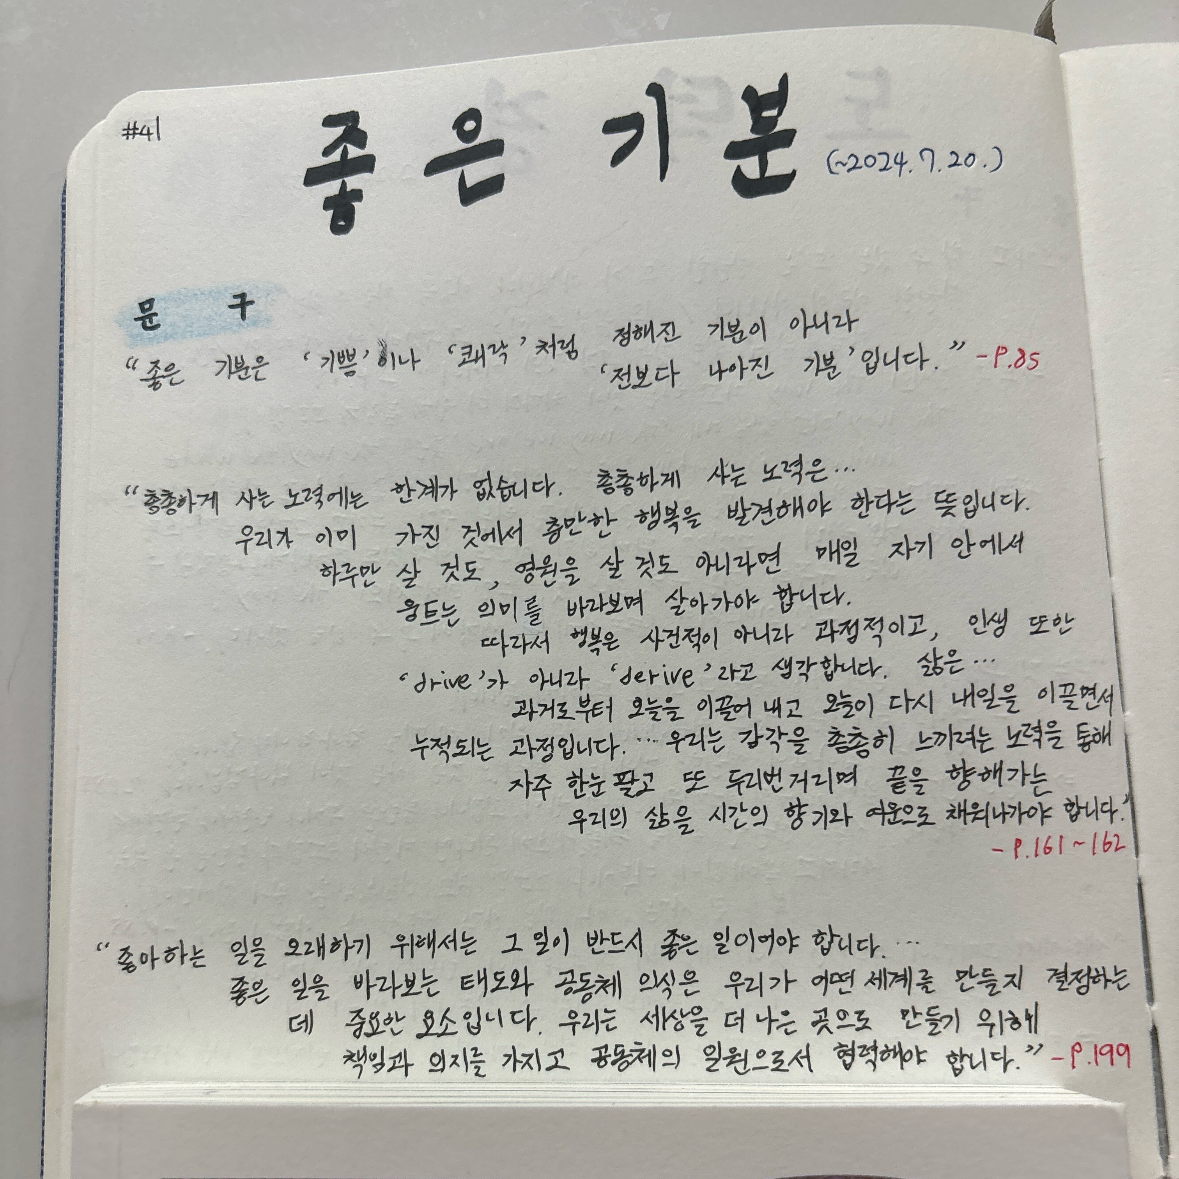 #41
좋은 기분 (~2024.7.20.)
문 구
“좋은 기분은 ‘기쁨’이나 ‘쾌락’처럼 정해진 기분이 아니라
‘전보다 나아진 기분’입니다.” -P.85
“총총하게 사는 노력에는 한계가 없습니다. 총총하게 사는 노력은…
우리가 이미 가진 것에서 충만한 행복을 발견해야 한다는 뜻입니다.
하루만 살 것도, 영원을 살 것도 아니라면 매일 자기 안에서
움트는 의미를 바라보며 살아가야 합니다.
따라서 행복은 사건적이 아니라 과정적이고, 인생 또한
‘drive’가 아니라 ‘derive’라고 생각합니다. 삶은…
과거로부터 오늘을 이끌어 내고 오늘이 다시 내일을 이끌면서
누적되는 과정입니다. …우리는 감각을 총총히 느끼려는 노력을 통해
자주 한눈 팔고 또 두리번거리며 끝을 향해가는
우리의 삶을 시간의 향기와 여운으로 채워나가야 합니다.”
- P.161~162
“좋아하는 일을 오래하기 위해서는 그 일이 반드시 좋은 일이어야 합니다. …
좋은 일을 바라보는 태도와 공동체 의식은 우리가 어떤 세계를 만들지 결정하는
데 중요한 요소입니다. 우리는 세상을 더 나은 곳으로 만들기 위해
책임과 의지를 가지고 공동체의 일원으로서 협력해야 합니다.” -P.199